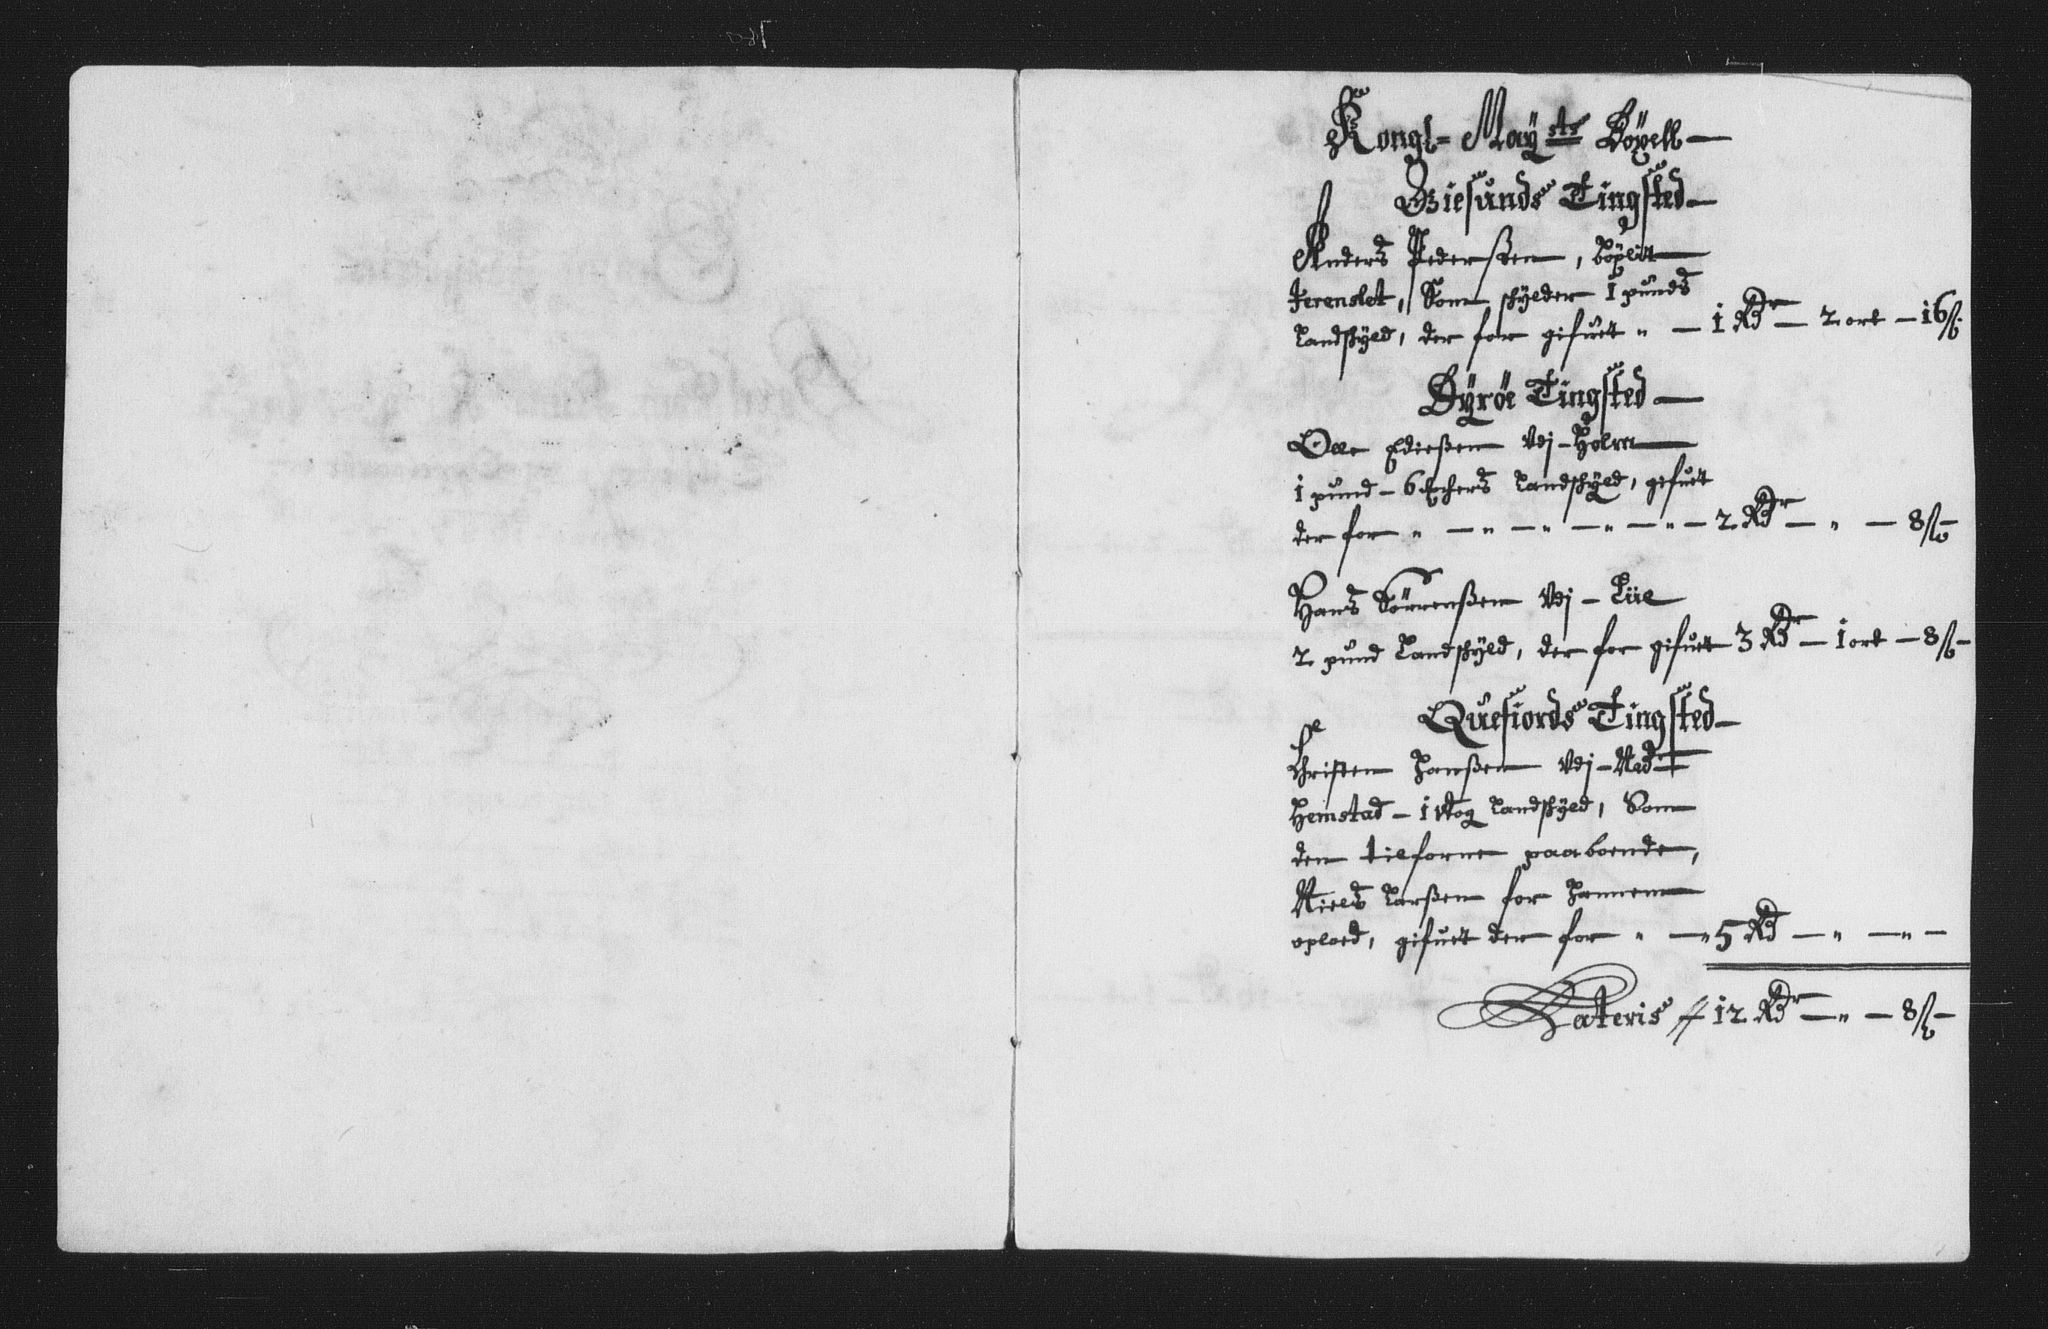 Kongl- Maÿ sts Böxell
Giesunds Tingsted
Anders Pederßen, böxlet
Jerenslet, Som schÿlder 1 punds
Landschÿld, der for gifuet " - 1 Rdr - 2 ort - 16 ß
Dÿröe Tingsted
Olle Edisßen vdj - Holm
1 pund - 6 Schers Landschÿld, gifuet
der for " - " - " - " - " - 2 Rdr - " - 8 ß
Hans Sörrenßen vdj - Lüe
2 pund Landschÿld, der for gifuet 3 Rdr - 1 ort - 8 ß
Quefiords Tingsted
Christen Hanßen vdj - Ned
Hemstad - 1 wog Landschÿld, Som
den tilforne paaboende,
Niels Larßen for hannem
oploed, gifuet der for " - " 5 Rd - " - " -
Lateris // 12 Rdr - " - 8 ß